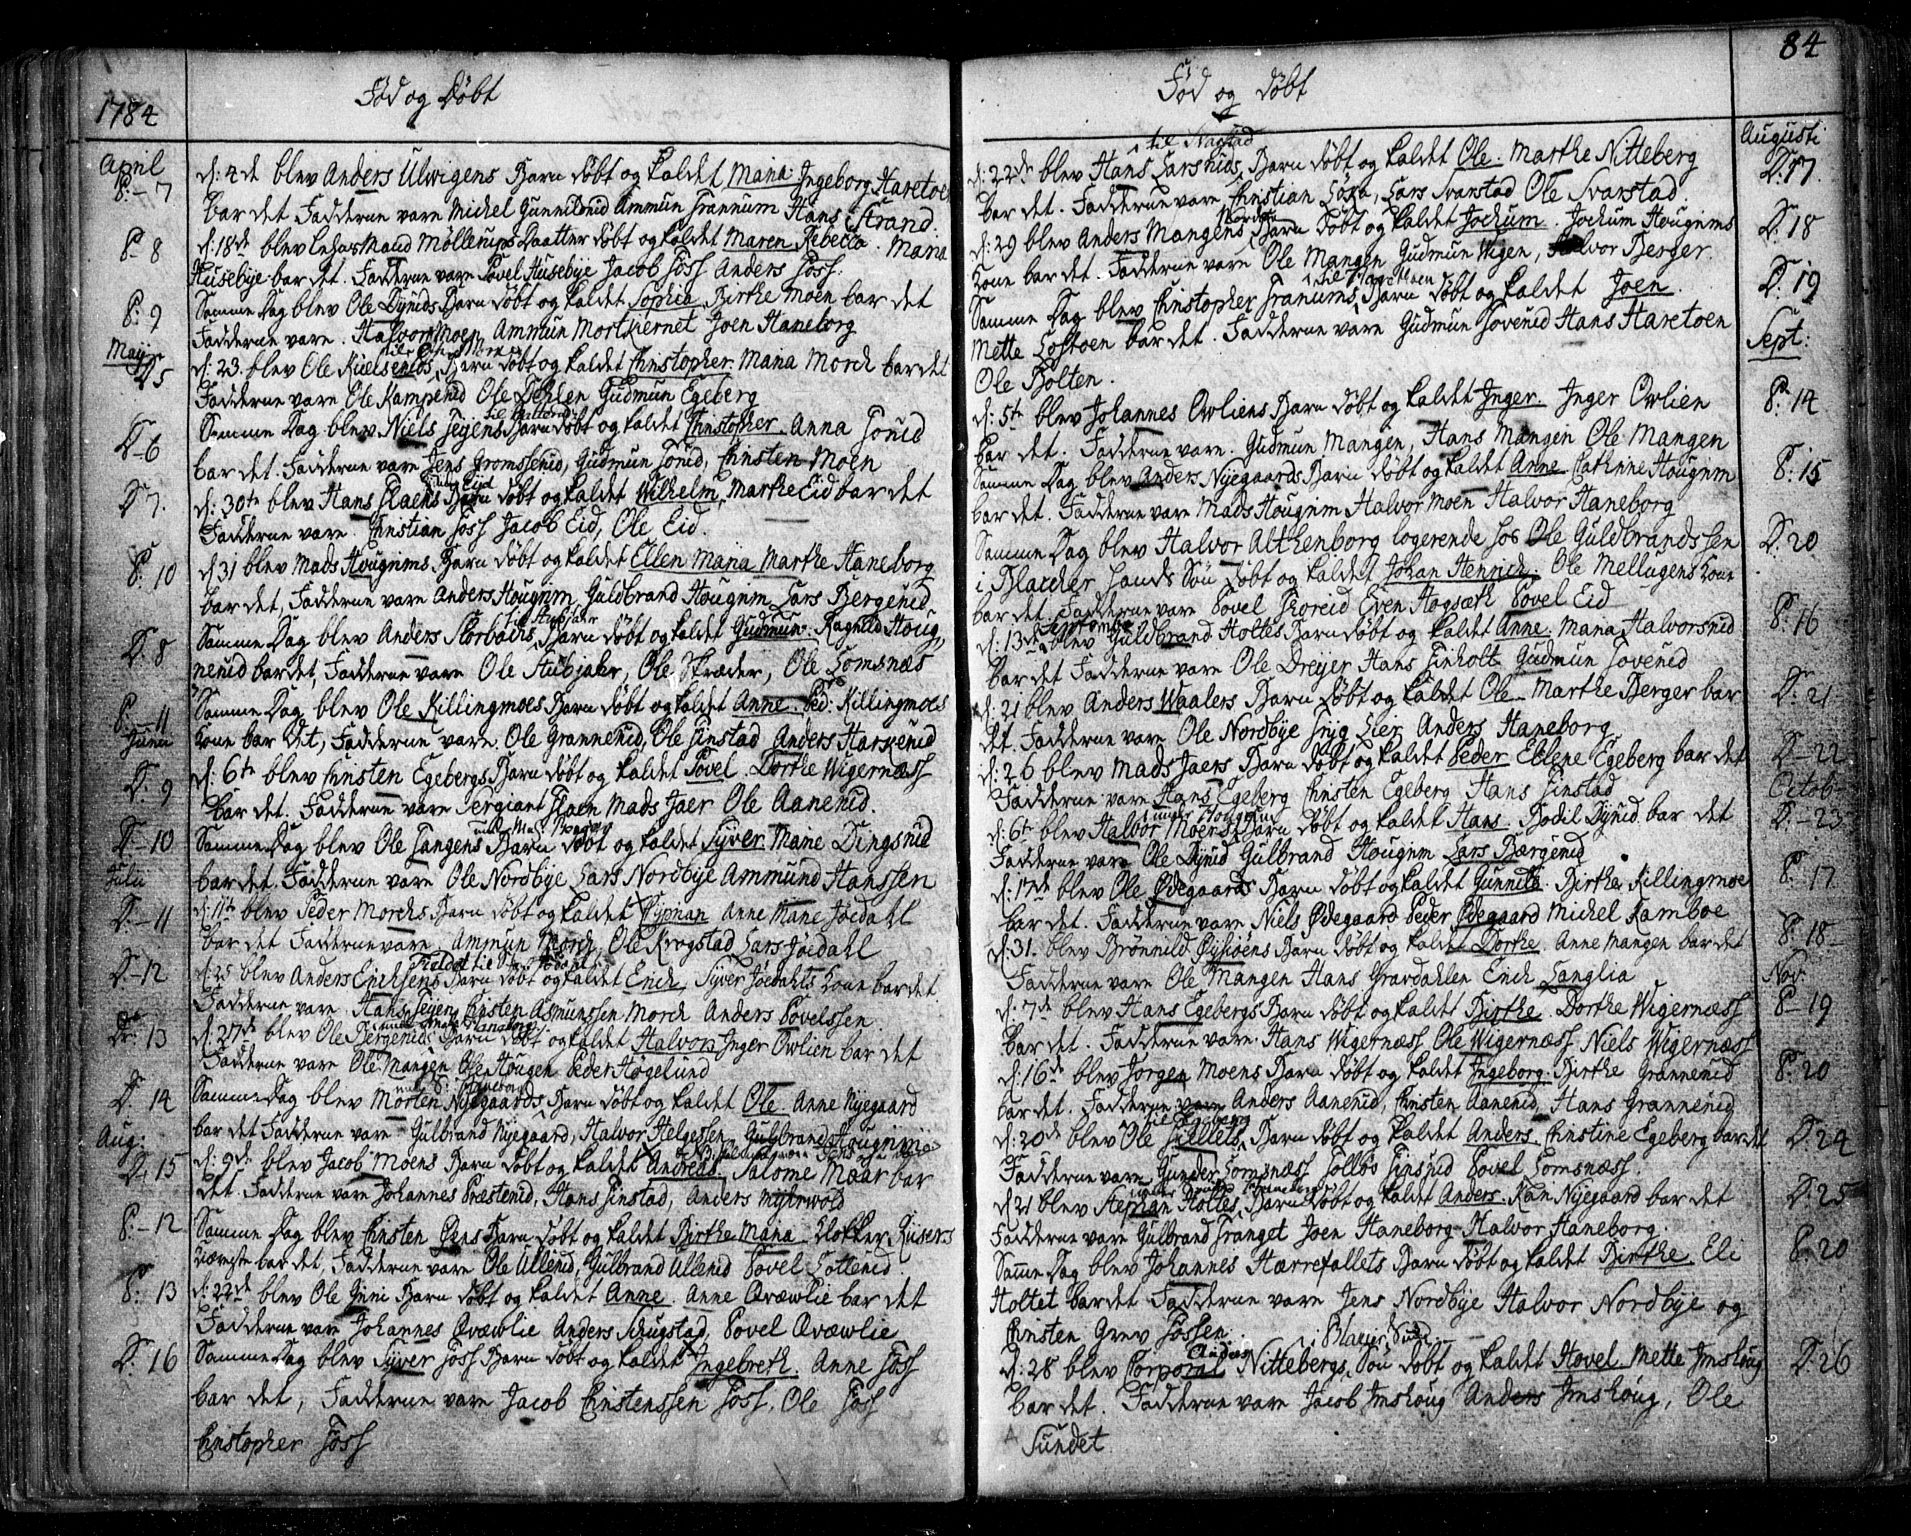 1784
Fød og Døbt
April
P: - 7
d: 4de blev Anders Ulvigens Barn døbt og kaldet Maria. Ingeborg Haretoen
bar det. Fadderne vare Michel Gunnildrud Ammun Grannum Hans Strand.
P 8
d: 18de blev Mand Møllerups Daatter døbt og kaldet Maren Rebecca. Maria
Husebye bar det. Fadderne vare Povel Husebye Jacob Foss Anders Foss.
P: 9
Samme Dag blev Ole Dynids Barn døbt og kaldet Sophia Birthe Moen bar det
Fadderne vare. Halvor Moen Ammun Mortkiernet Joen Haneborg
Maij
D 5
d: 23. blev Ole Barn døbt og kaldet Christopher. Maria Morck bar det
Fadderne vare Ole Kampenid Ole Dehlen Gudmun Egeberg
D 6
Samme Dag blev Niels Seyens Barn døbt og kaldet Christopher. Anna
bar det. Fadderne vare Jens Gromssenid, Gudmun Christen Moen
D 7.
d: 30te blev Hans Barn døbt og kaldet Wilhelm, Marthe Eid bar det
Fadderne vare. Christian Foss Jacob Eid, Ole Eid.
P: 10
d 31 blev Mads Hougnims Barn døbt og kaldet Ellen Maria Marthe Haneborg
bar det, Fadderne vare Anders Hougnim Guldbrand Hougnim Lars Bergenid
D: 8
Samme Dag blev Anders til Aabjahr Barn døbt og kaldet Gudmun. Ragnild Houg,
nenid bar det, Fadderne vare Ole Aabjahr, Ole Skræder, Ole Komsnæs
P: - 11
Samme Dag blev Ole Killingmoes Barn døbt og kaldet Anne. Ped: Killingmoes
Junii
Kone bar det, Fadderne vare Ole Grannenid, Ole Finstad Anders Harkenid
D: 9
d: 6te blev Christen Egebergs Barn døbt og kaldet Povel. Dorthe Wigernæss
bar det. Fadderne vare Sergiant Mads Jaer Ole Aanenid.
D - 10
Samme Dag blev Ole Langens Barn døbt og kaldet Syver Marie Dingsrud
Julii
bar det. Fadderne vare Ole Nordbye Lars Nordbye Ammund Hanssen
D - 11
d: 11te blev Peder Morcks Barn døbt og kaldet Anne Marie Jøedahl
bar det Fadderne vare Ammun Morck, Ole Krogstad Lars Jøedahl
D - 12
d: 25 blev Anders Erichsens Barn døbt og kaldet Erich Syver Jøedahls Kone bar det
Fadderne vare. Hans Seyen Christen Asmunssen Morck Anders Povelssen.
D: 13
d: 27de blev Ole Bergenids Barn døbt og kaldet Halvor Inger Owlien bar det
Fadderne vare Ole Mangen Ole Hougen Peder Høgelund
D: 14
Samme Dag blev Morten Nyegaards Barn døbt og kaldet Ole. Anne Nyegaard
bar det Fadderne vare Gulbrand Nyegaard, Halvor Helgessen Gulbrand Hougnim
Aug:
D: 15
d: 9de blev Jacob Moens Barn døbt og kaldet Andreas Salome Moar bar
det. Fadderne vare Johannes Præstenid, Hans Finstad, Anders Myhrvold
P: - 12
Samme Dag blev Christen Barn døbt og kaldet Birthe Maria Klokker Riisers
bar det, Fadderne vare Ole Ullerid, Gulbrand Ullerid Povel
P: 13
d: 22de blev Ole Barn døbt og kaldet Anne. Anne Ovæwlie bar det
Fadderne vare Johannes Ovæwlie Anders Skugstad, Povel Ovæwlie
D: 16
Samme Dag blev Syver Foss Barn døbt og kaldet Ingebreth. Anne Foss
bar det, Fadderne vare Jacob Christenssen Foss. Ole Foss
Christopher Foss
84
Fød og døbt
Augusti
D: 17
d: 22de blev Hans Larsnids til Barn døbt og kaldet Ole. Marthe Nitteberg
bar det. Fadderne vare Christian Lars Svarstad Ole Svarstad
D. 18
d: 29 blev Anders Mangens Barn døbt og kaldet Jochum. Jochum Hougnims
Kone bar det. Fadderne vare Ole Mangen Gudmun Wigen, Halvor Berger
D. 19
Samme Dag blev Christopher Granums Barn døbt og kaldet Joen.
Mette Lostoen bar det. Fadderne vare Gudmun Hans Haretoen
Ole Bolten.
Sept:
P 14
d: 5te blev Johannes Owliens Barn døbt og kaldet Inger. Inger Owlien
bar det. Fadderne vare. Gudmun Mangen, Hans Mangen Ole Mangen
P: 15
Samme Dag blev Anders Nyegaards Barn døbt og kaldet Anne Cathrine Hougnim
bar det. Fadderne vare Mads Hougnim Halvor Moen Halvor Haneborg
D. 20
Samme Dag blev Halvor Althenborg logerende hos Ole Guldbrandssen
i Blacher Søn døbt og kaldet Johan Henrich. Ole Mellagens Kone
bar det Fadderne vare Povel Even Hogsæth Povel Eid
P: 16
d: 13de Septembr blev Guldbrand Holtes Barn døbt og kaldet Anne. Maria Halvorsrud
bar det Fadderne vare Ole Dreyer Hans Gudmun
D: 21
d: 21 blev Anders Waalers Barn døbt og kaldet Ole. Marthe Berger bar
det. Fadderne vare Ole Nordbye Anders Haneborg
D - 22
d: 26 blev Mads Jaers Barn døbt og kaldet Peder Ellene Egeberg bar det
Fadderne vare Hans Egeberg Christen Egeberg Hans Finstad
Octob:
D: - 23
d: 6te blev Halvor Moens under Hougnim Barn døbt og kaldet Hans. Bodil Dynid bar det
Fadderne vare Ole Dynid Gulbrand Hougnim Lars Bergenid
P: 17
d: 17de blev Ole Ødegaards Barn døbt og kaldet Gunnild. Birthe Killingmoe
bar det. Fadderne vare Niels Ødegaard Peder Ødegaard Michel Kamboe
P: 18 -
d: 31. blev Brønnild Barn døbt og kaldet Dorthe. Anne Mangen bar det
Fadderne vare Ole Mangen Hans Gravdahlen Erich Langlia
Nov:
P - 19
d: 7de blev Hans Egebergs Barn døbt og kaldet Birthe. Dorthe Wigernæss
bar det. Fadderne vare. Hans Wigernæss Ole Wigernæss Niels Wigernæss
P: 20
d: 16de blev Jørgen Moens Barn døbt og kaldet Ingeborg. Birthe Grannenid
bar det. Fadderne vare Anders Aanenid, Christen Aanenid, Hans Grannenid
D: 24
d: 20de blev Ole til Egeberg Barn døbt og kaldet Anders. Christine Egeberg bar det
Fadderne vare Gunder Komsnæss Povel Komsnæss.
D: 25
d 21 blev Holtes Barn døbt og kaldet Anders. Kari Nyegaard bar det
Fadderne vare Gulbrand Joen Haneborg Halvor Haneborg.
P: 20
Samme Dag blev Johannes Hærrefallets Barn døbt og kaldet Birthe. Eli
Holtet bar det Fadderne vare Jens Nordbye Halvor Nordbye og
Christen Grev Fossen.
D: 26
d: 28 blev Corporal Anders Nittebergs Søn døbt og kaldet Hovel Mette Imshoug
bar det. Fadderne vare Jacob Imshoug Anders Imshoug, Ole
Sundet